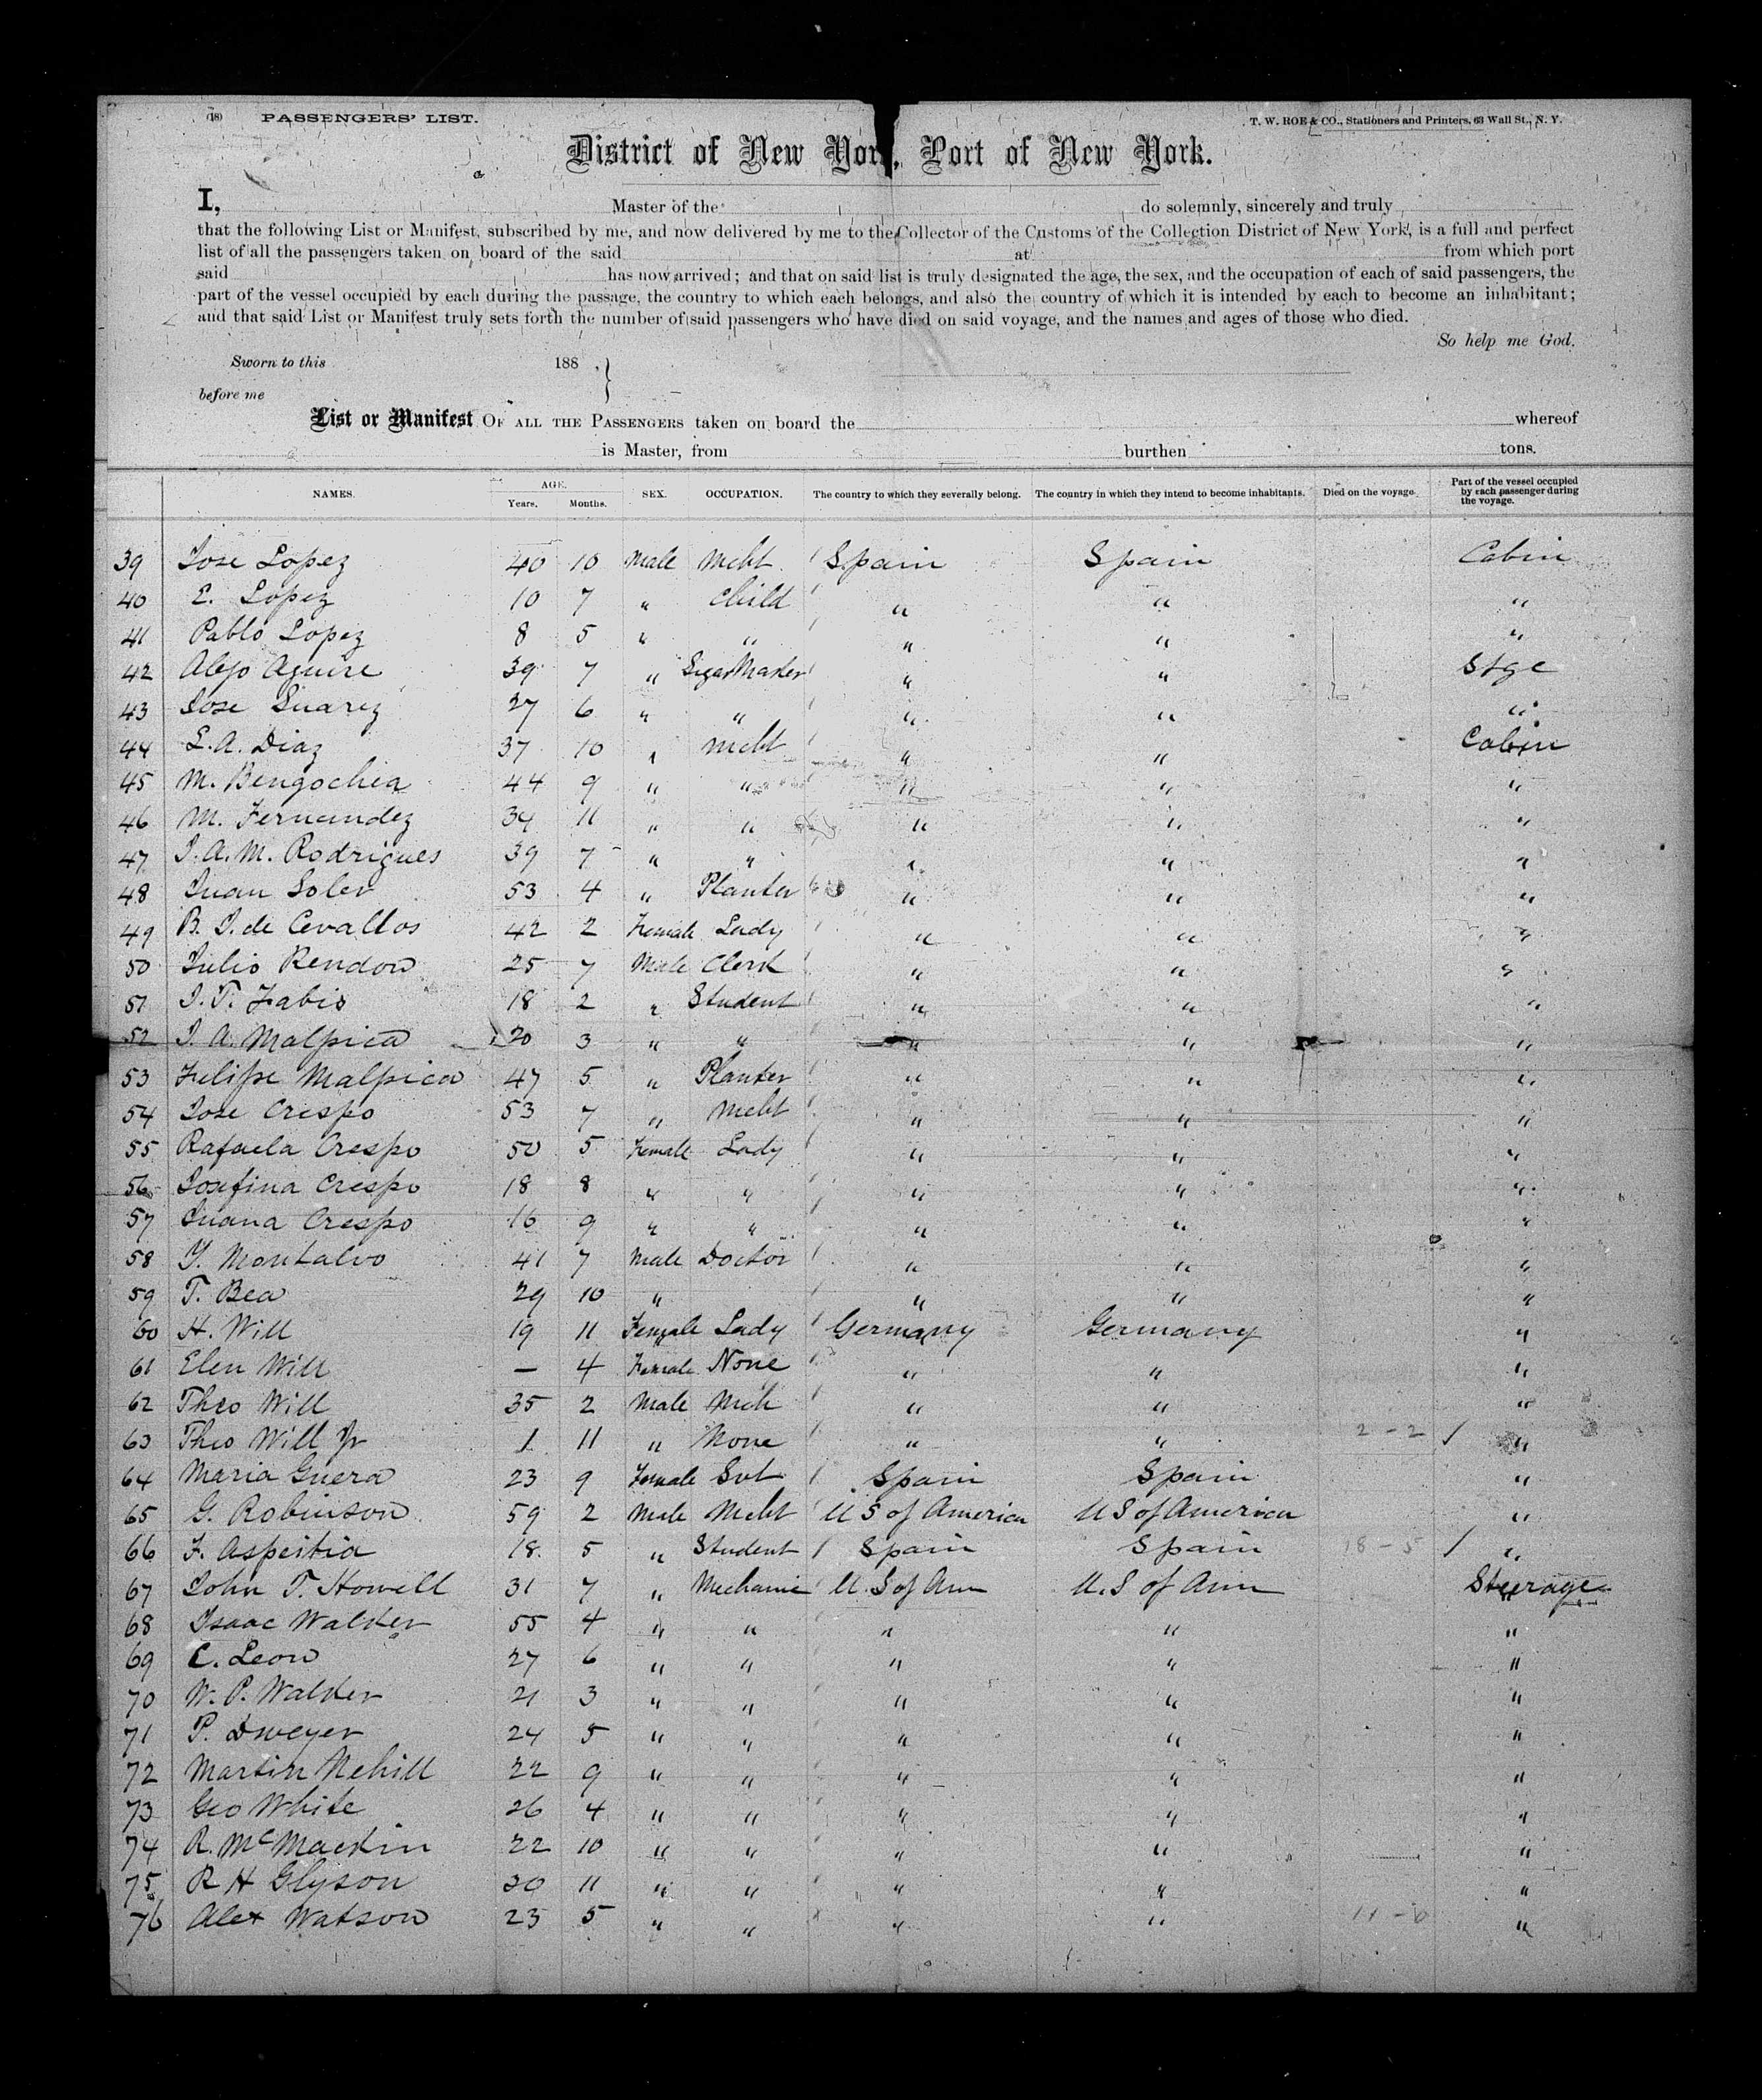 (18) PASSENGERS' LIST. T. W. ROE & CO., Stationers and Printers, 63 Wall St., N. Y.
District of New York, Port of New York.
I, Master of the do solemnly, sincerely and truly
that the following List or Manifest, subscribed by me, and now delivered by me to the Collector of the Customs of the Collection District of New York, is a full and perfect
list of all the passengers taken on board of the said at from which port
said has now arrived; and that on said list is truly designated the age, the sex, and the occupation of each of said passengers, the
part of the vessel occupied by each during the passage, the country to which each belongs, and also the country of which it is intended by each to become an inhabitant;
and that said List or Manifest truly sets forth the number of said passengers who have died on said voyage, and the names and ages of those who died.
So help me God.
Sworn to this 188 .
before me
List or Manifest OF ALL THE PASSENGERS taken on board the whereof
is Master, from burthen tons.
NAMES. AGE. Years. Months. SEX. OCCUPATION. The country to which they severally belong. The country in which they intend to become inhabitants. Died on the voyage. Part of the vessel occupied by each passenger during the voyage.
39 Jose Lopez 40 10 Male Mcht Spain Spain Cabin
40 E. Lopez 10 7 " Child " " "
41 Pablo Lopez 8 5 " " " " "
42 Alejo Aguire 39 7 " Segar Maker " " Stge
43 Jose Suarez 27 6 " " " " "
44 L. A. Diaz 37 10 " Mcht " " Cabin
45 M. Bengochea 44 9 " " " " "
46 M. Fernandez 34 11 " " " " "
47 J. A. M. Rodrigues 39 7 " " " " "
48 Juan Soler 53 4 " Planter " " "
49 B. J. de Cevallos 42 2 Female Lady " " "
50 Julio Rendon 25 7 Male Clerk " " "
51 J. T. Fabio 18 2 " Student " " "
52 J. A. Malpica 20 3 " " " " "
53 Felipe Malpica 47 5 " Planter " " "
54 Jose Crespo 53 7 " Mcht " " "
55 Rafaela Crespo 50 5 Female Lady " " "
56 Josefina Crespo 18 8 " " " " "
57 Juana Crespo 16 9 " " " " "
58 Y. Montalvo 41 7 Male Doctor " " "
59 T. Bea 29 10 " " " "
60 H. Will 19 11 Female Lady Germany Germany "
61 Elen Will — 4 Female None " " "
62 Theo Will 35 2 Male Mch " " "
63 Theo Will Jr 1 11 " None " " 2-2 "
64 Maria Guera 23 9 Female Svt Spain Spain "
65 G. Robinson 59 2 Male Mcht U S of America U S of America "
66 F. Aspeitia 18 5 " Student Spain Spain 18-5 "
67 John T. Howell 31 7 " Mechanic U. S of Am U. S of Am Steerage
68 Isaac Walker 55 4 " " " " "
69 C. Leon 27 6 " " " " "
70 W. P. Walker 21 3 " " " " "
71 P. Dweyer 24 5 " " " " "
72 Martin Nehill 22 9 " " " " "
73 Geo White 26 4 " " " " "
74 R. McMackin 22 10 " " " " "
75 R H Glyson 30 11 " " " " "
76 Alex Watson 23 5 " " " " "